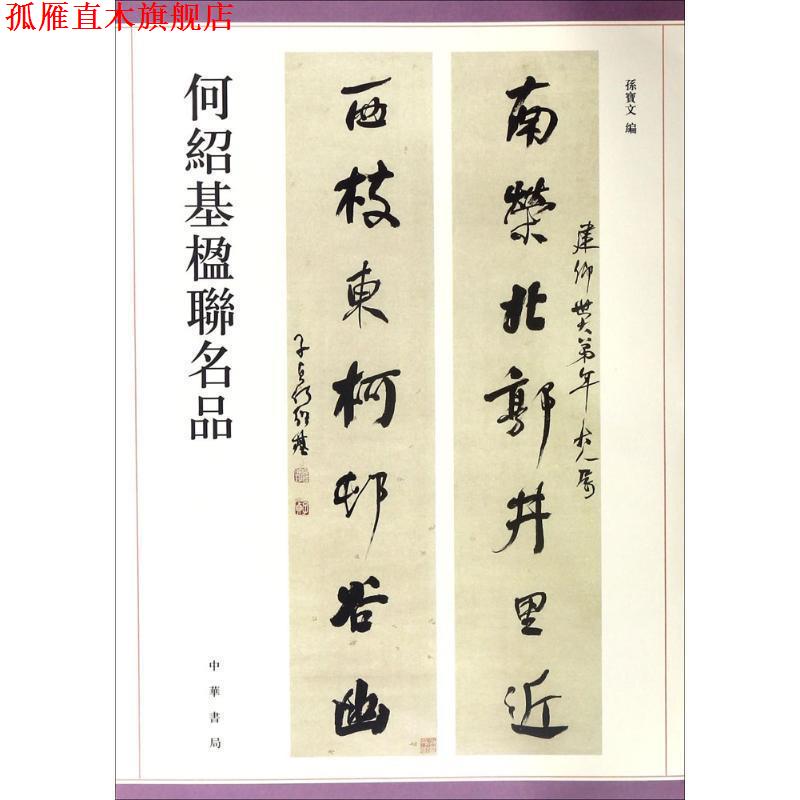 孤雁直木旗舰店
孫寶文 編
建仰世大弟年大人屬
南榮北郭井里近
西枝東柯邨谷幽
子貞何紹基
何紹基楹聯名品
中華書局